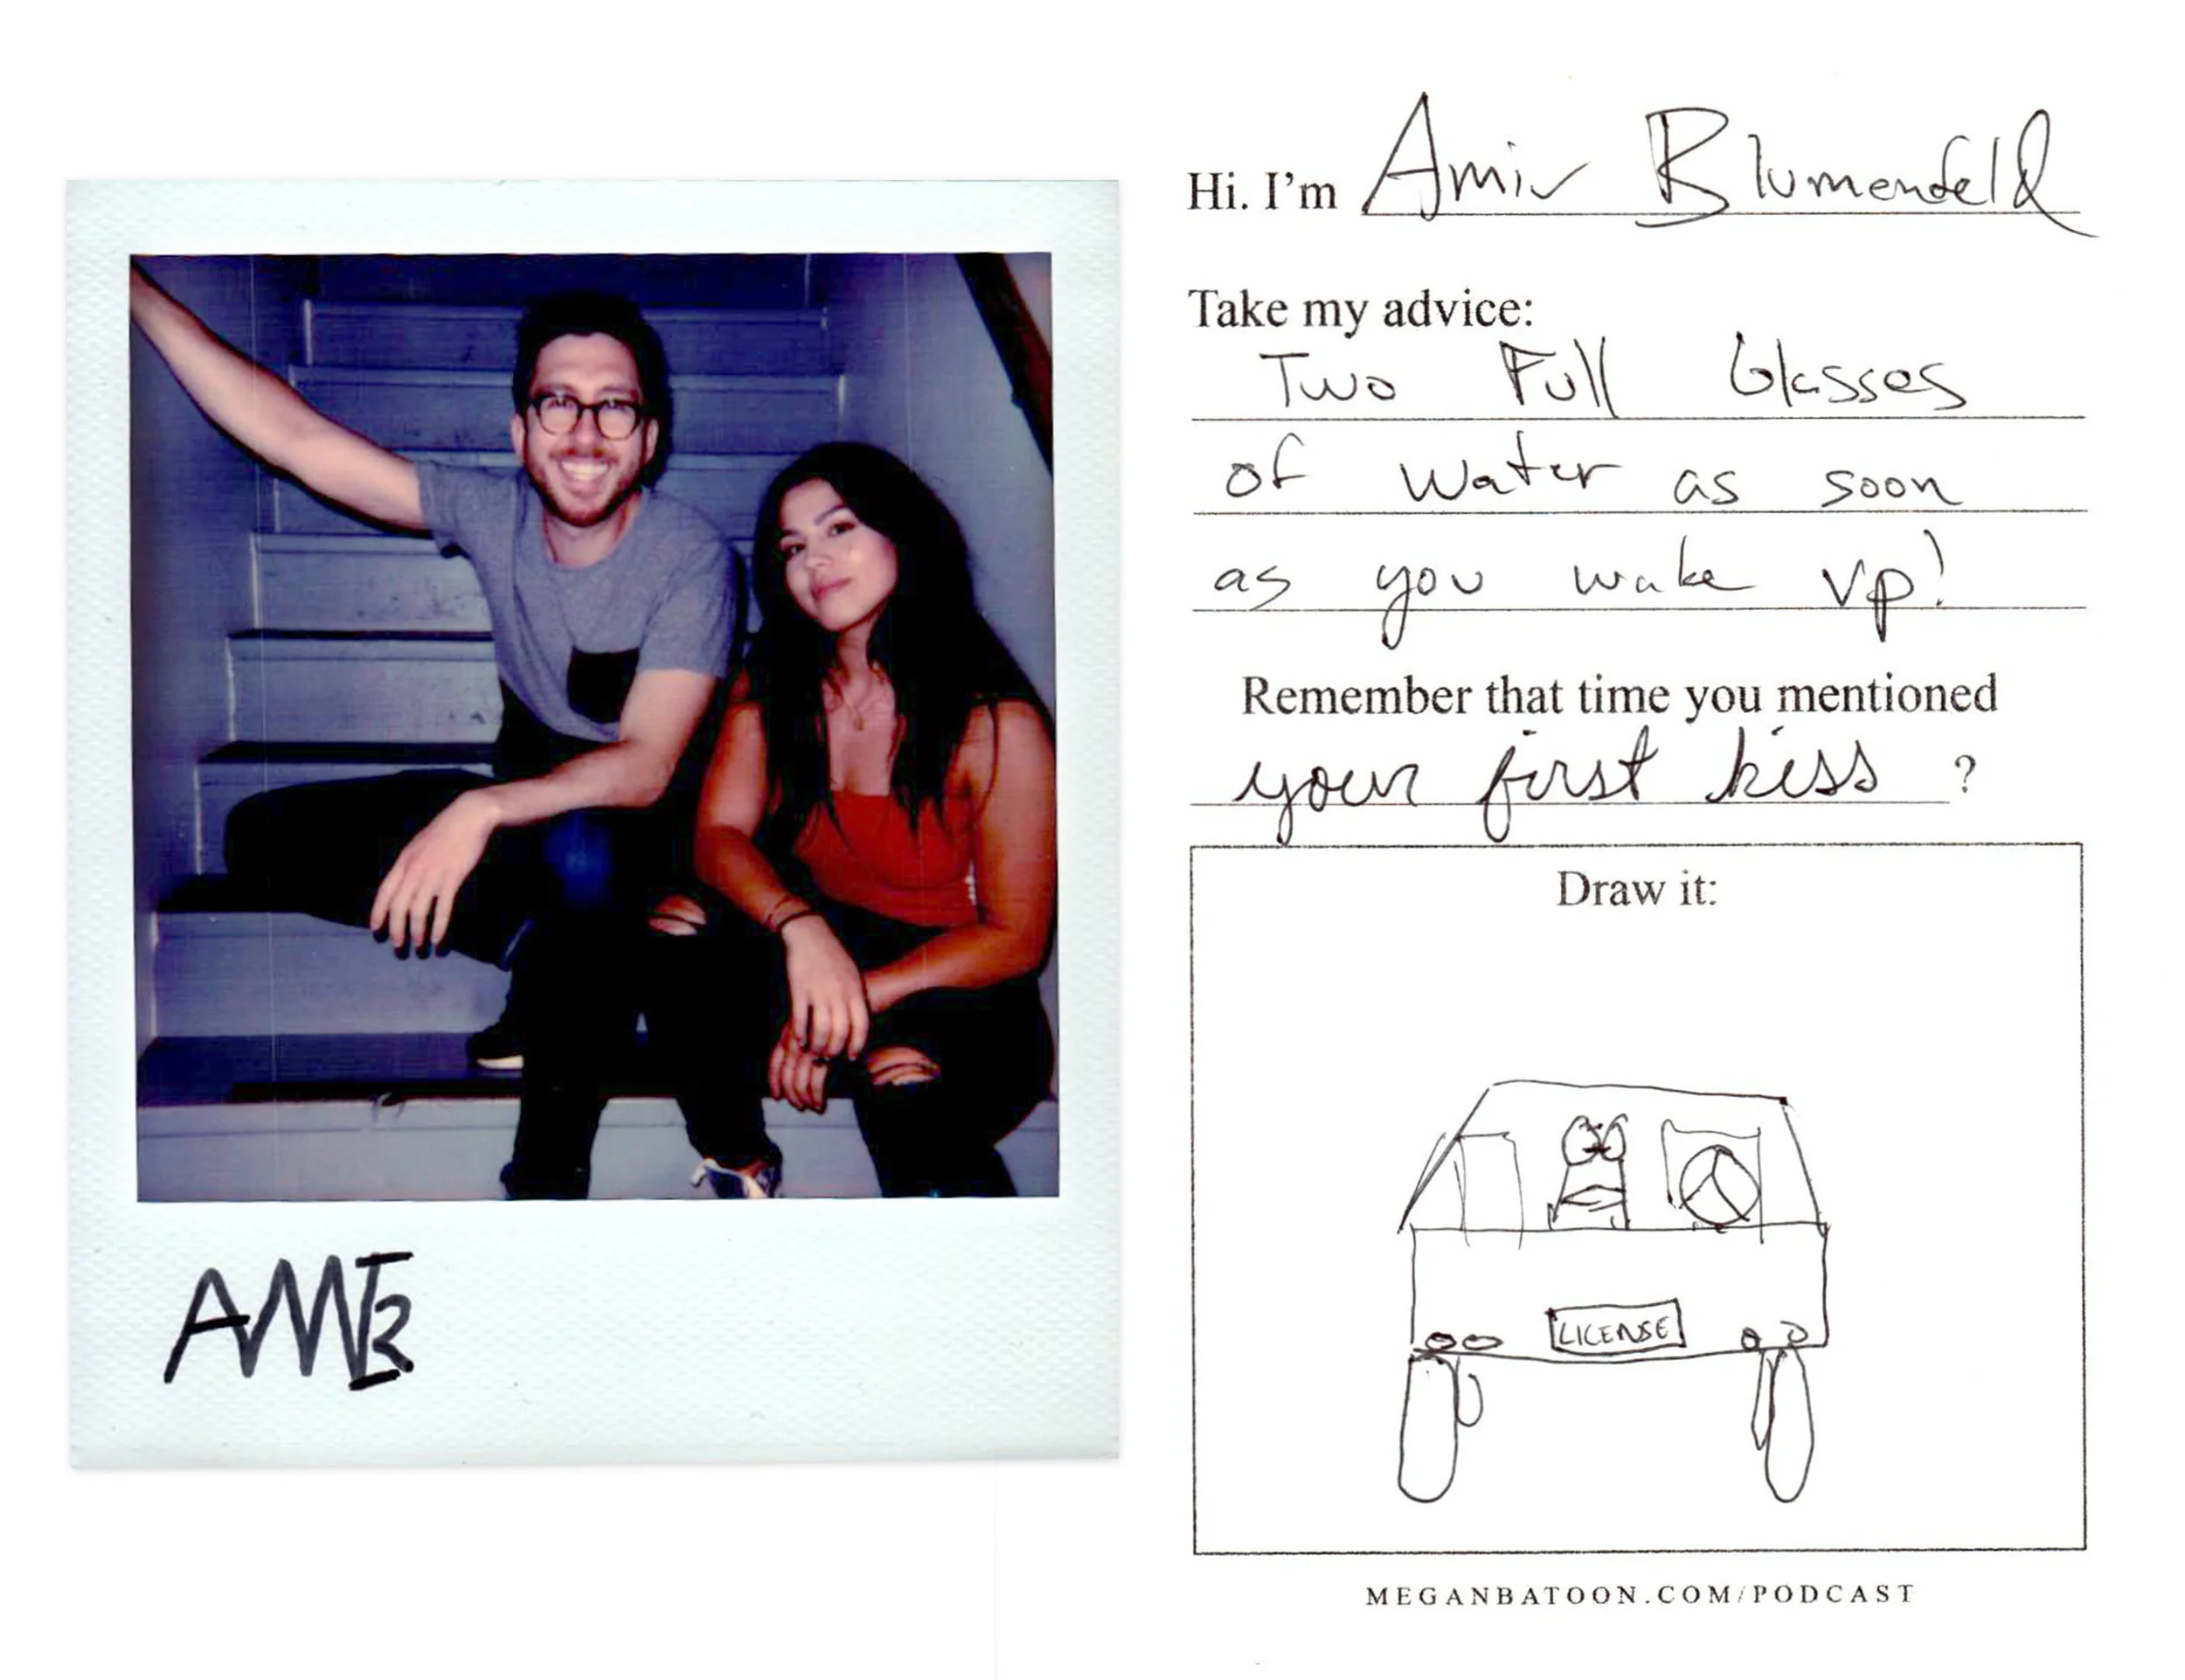 AMIR
Hi. I'm Amir Blumenfeld
Take my advice:
Two Full Glasses
of water as soon
as you wake up!
Remember that time you mentioned
your first kiss ?
Draw it:
LICENSE
MEGANBATOON.COM/PODCAST